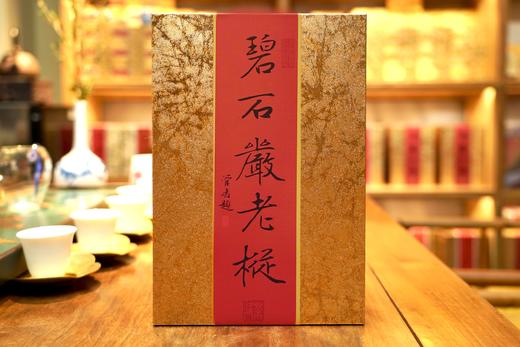 碧石巖老樅